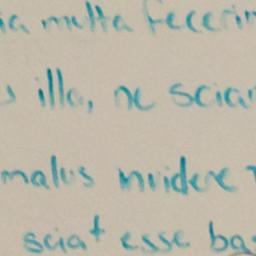 ia multa fecerin
s illa, ne scian
malus invidere
sciat esse ba